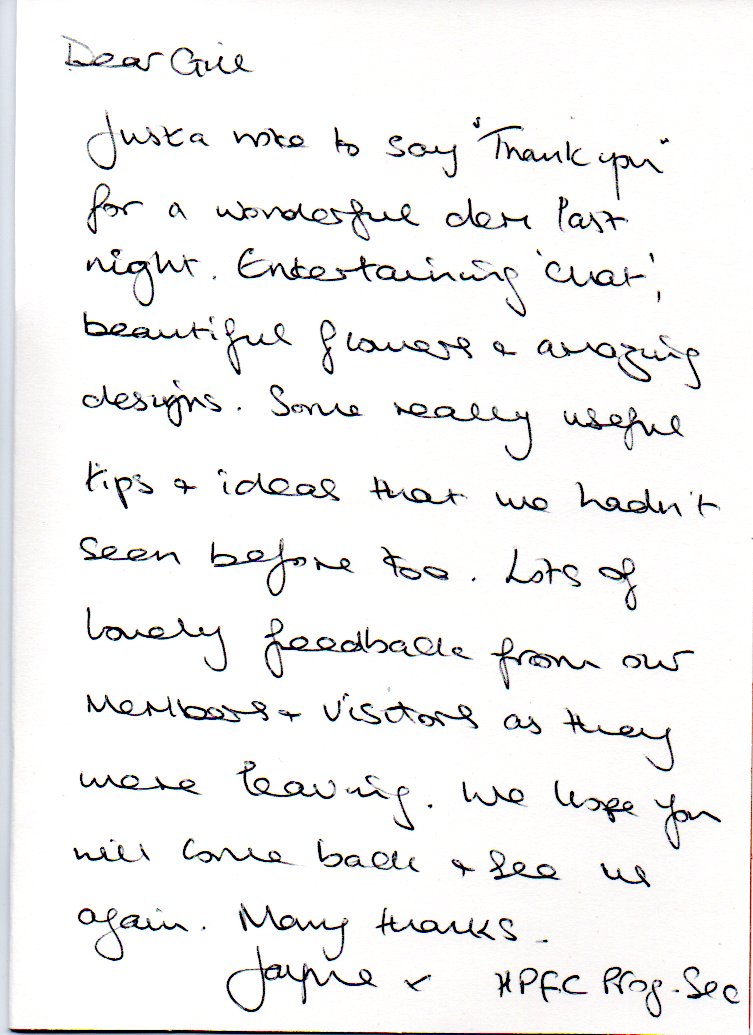 Dear Gill
Just a note to say "Thank you"
for a wonderful dem last
night. Entertaining 'chat',
beautiful flowers + amazing
designs. Some really useful
tips + ideas that we hadn't
seen before too. Lots of
lovely feedback from our
members + visitors as they
were leaving. We hope you
will come back + see us
again. Many thanks.
Jayne x HPFC Prog. Sec